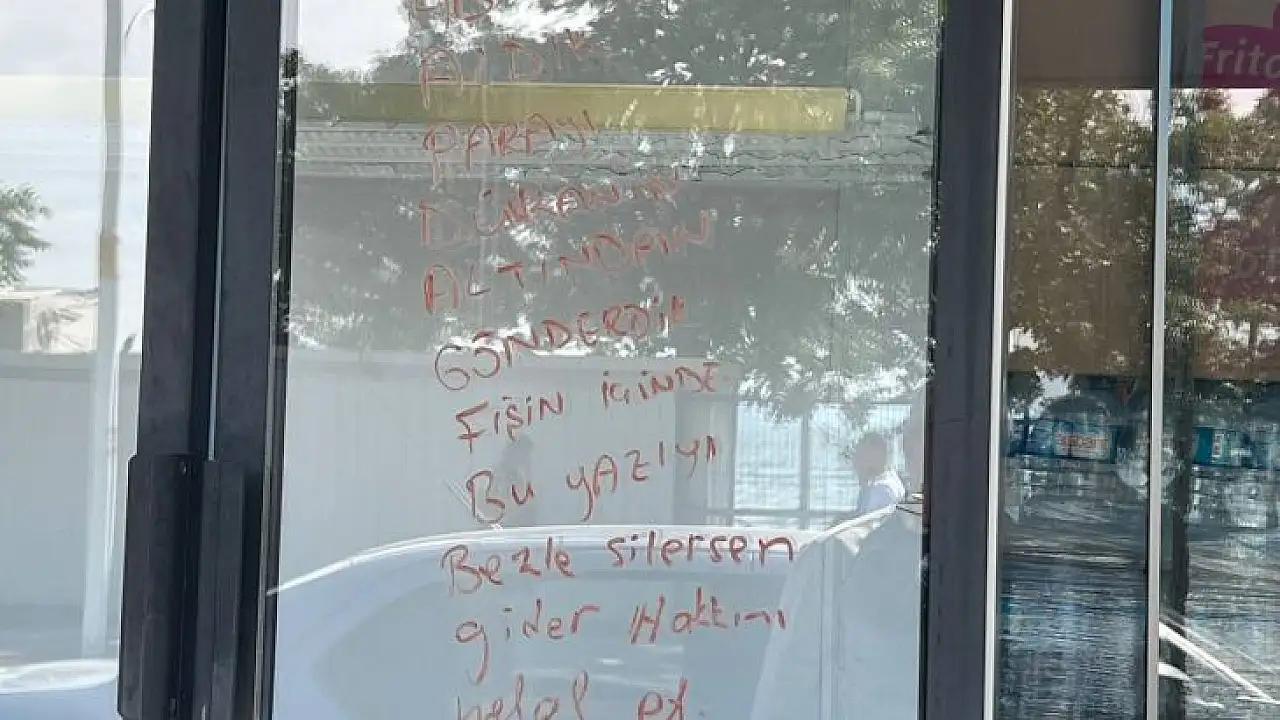 ALDIK
PARAYI
DÜKANIN
ALTINDAN
GÖNDERDİK
FİŞİN İÇİNDE
BU YAZIYI
Bezle silersen
gider Hakkını
helal et.
Frito